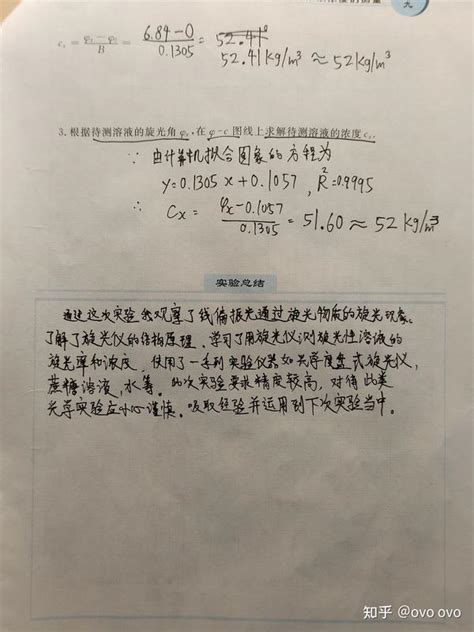 九
cₓ = (φₓ − φ₀)/B = (6.84−0)/0.1305 = 52.41
52.41 kg/m³ ≈ 52 kg/m³
3. 根据待测溶液的旋光角 φₓ,在 φ−c 图线上求解待测溶液的浓度 cₓ.
∵ 由计算机拟合图象的方程为
y=0.1305x+0.1057, R²=0.9995
∴ Cx = (φx−0.1057)/0.1305 = 51.60 ≈ 52 kg/m³
实验总结
通过这次实验我观察了线偏振光通过旋光物质的旋光现象。
了解了旋光仪的结构原理、学习了用旋光仪测旋光性溶液的
旋光率和浓度,使用了一系列实验仪器如光学度盘式旋光仪,
蔗糖溶液,水等。此次实验要求精度较高,对待此类
光学实验应小心谨慎。吸取经验并运用到下次实验当中。
知乎 @ovo ovo